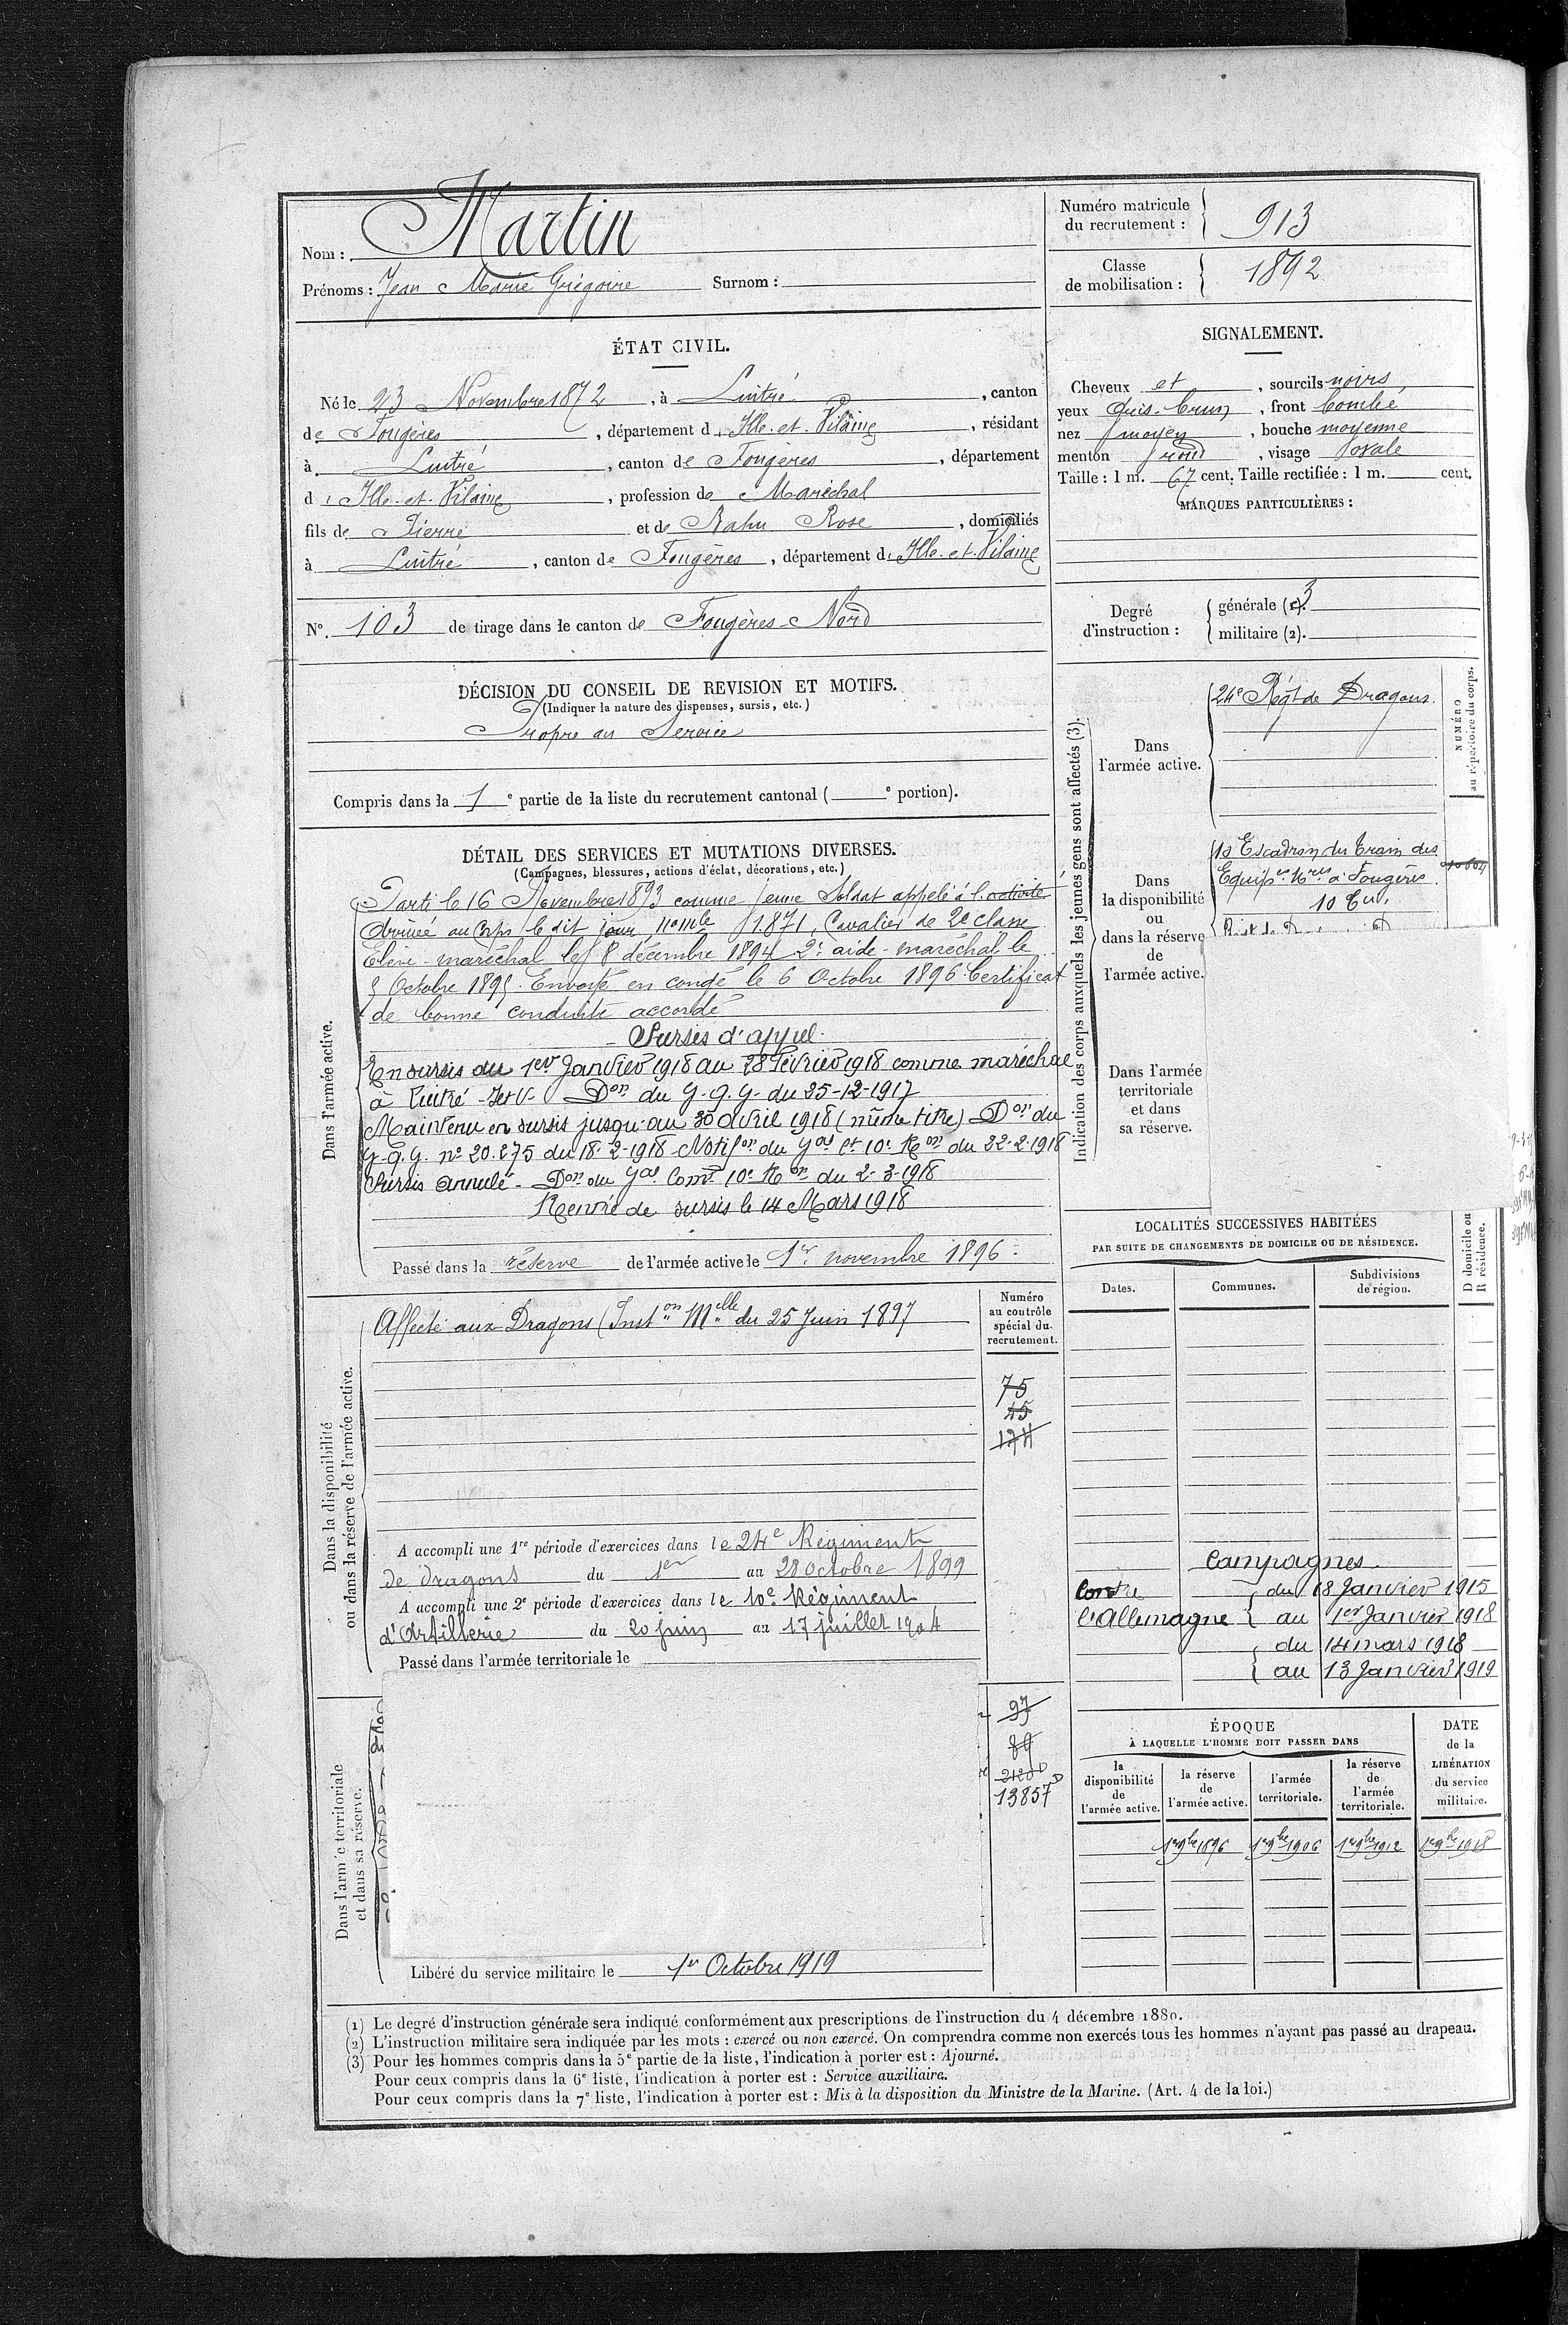 Nom : Martin
Prénoms : Jean Marie Grégoire Surnom :
Numéro matricule
du recrutement : 913
Classe
de mobilisation : 1892
ÉTAT CIVIL.
Né le 23 Novembre 1872, à Luitré, canton
de Fougères, département d Ille-et-Vilaine, résidant
à Luitré, canton de Fougères, département
d Ille-et-Vilaine, profession de Maréchal
fils de Pierre et de Rahu Rose, domiciliés
à Luitré, canton de Fougères, département d Ille-et-Vilaine
SIGNALEMENT.
Cheveux et, sourcils noirs
yeux gris-brun, front bombé
nez moyen, bouche moyenne
menton rond, visage ovale
Taille : 1 m. 67 cent. Taille rectifiée : 1 m. cent.
MARQUES PARTICULIÈRES :
N°. 103 de tirage dans le canton de Fougères-Nord
Degré
d'instruction :
générale 3
militaire (2).
DÉCISION DU CONSEIL DE REVISION ET MOTIFS.
(Indiquer la nature des dispenses, sursis, etc.)
Propre au Service
Compris dans la 1e partie de la liste du recrutement cantonal ( e portion).
Indication des corps auxquels les jeunes gens sont affectés (3).
NUMÉRO
au répertoire du corps.
Dans
l'armée active.
24e Régt de Dragons.
Dans
la disponibilité
ou
dans la réserve
de
l'armée active.
10 Escadron du Train des
Equip. à Fougères
Dans l'armée
territoriale
et dans
sa réserve.
DÉTAIL DES SERVICES ET MUTATIONS DIVERSES.
(Campagnes, blessures, actions d'éclat, décorations, etc.)
Dans l'armée active.
Parti le 16 Novembre 1893 comme jeune Soldat appelé à l'activité
Arrivé au Corps le dit jour, n° mle 1871, Cavalier de 2e classe
Elève-maréchal le 8 décembre 1894 2e aide-maréchal le
5 Octobre 1895. Envoyé en congé le 6 Octobre 1896 Certificat
de bonne conduite accordé
- Sursis d'appel -
En sursis du 1er Janvier 1918 au 28 Février 1918 comme maréchal
à Luitré - Don du G.Q.G. du 25-12-1917
Maintenu en sursis jusqu'au 30 Avril 1918 (même titre) Don du
G.Q.G. n° 20.275 du 18-2-1918 - Notifon du Gal Ct 10e Ron du 22-2-1918
Sursis annulé - Don du Gal Comt 10e Ron du 2-3-1918
Rentré de sursis le 14 Mars 1918
Passé dans la réserve de l'armée active le 1er novembre 1896.
Dans la disponibilité
ou dans la réserve de l'armée active.
Affecté aux Dragons (Inston Melle du 25 Juin 1897
Numéro
au contrôle
spécial du
recrutement.
75
45
174
A accompli une 1re période d'exercices dans le 24e Régiment
de dragons du 1er au 28 octobre 1899
A accompli une 2e période d'exercices dans le 10e Régiment
d'Artillerie du 20 juin au 17 juillet 1904
Passé dans l'armée territoriale le
Dans l'armée territoriale
et dans sa réserve.
13857
Libéré du service militaire le 1er Octobre 1919
LOCALITÉS SUCCESSIVES HABITÉES
PAR SUITE DE CHANGEMENTS DE DOMICILE OU DE RÉSIDENCE.
Dates.
Communes.
Subdivisions
de région.
D domicile ou
R résidence.
Campagnes
Contre du 18 Janvier 1915
l'Allemagne au 1er Janvier 1918
du 14 mars 1918
au 13 Janvier 1919
ÉPOQUE
À LAQUELLE L'HOMME DOIT PASSER DANS
la
disponibilité
de
l'armée active.
la réserve
de
l'armée active.
l'armée
territoriale.
la réserve
de
l'armée
territoriale.
DATE
de la
LIBÉRATION
du service
militaire.
1er 9bre 1896
1er 9bre 1906
1er 9bre 1912
1er 9bre 1918
(1) Le degré d'instruction générale sera indiqué conformément aux prescriptions de l'instruction du 4 décembre 1880.
(2) L'instruction militaire sera indiquée par les mots : exercé ou non exercé. On comprendra comme non exercés tous les hommes n'ayant pas passé au drapeau.
(3) Pour les hommes compris dans la 5e partie de la liste, l'indication à porter est : Ajourné.
Pour ceux compris dans la 6e liste, l'indication à porter est : Service auxiliaire.
Pour ceux compris dans la 7e liste, l'indication à porter est : Mis à la disposition du Ministre de la Marine. (Art. 4 de la loi.)